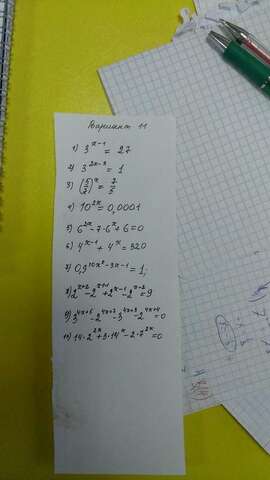 Вариант 11
1) 3^(x-1) = 27
2) 3^(2x-3) = 1
3) (5/7)^x = 7/5
4) 10^(2x) = 0,0001
5) 6^(2x) - 7·6^x + 6 = 0
6) 4^(x-1) + 4^x = 320
7) 0,9^(10x²-3x-1) = 1;
8) 2^(x+2) - 2^(x+1) + 2^(x-1) - 2^(x-2) = 9
9) 3^(4x+5) - 2^(4x+7) - 3^(4x+3) - 2^(4x+4) = 0
10) 14·2^(2x) + 3·14^x - 2·7^(2x) = 0